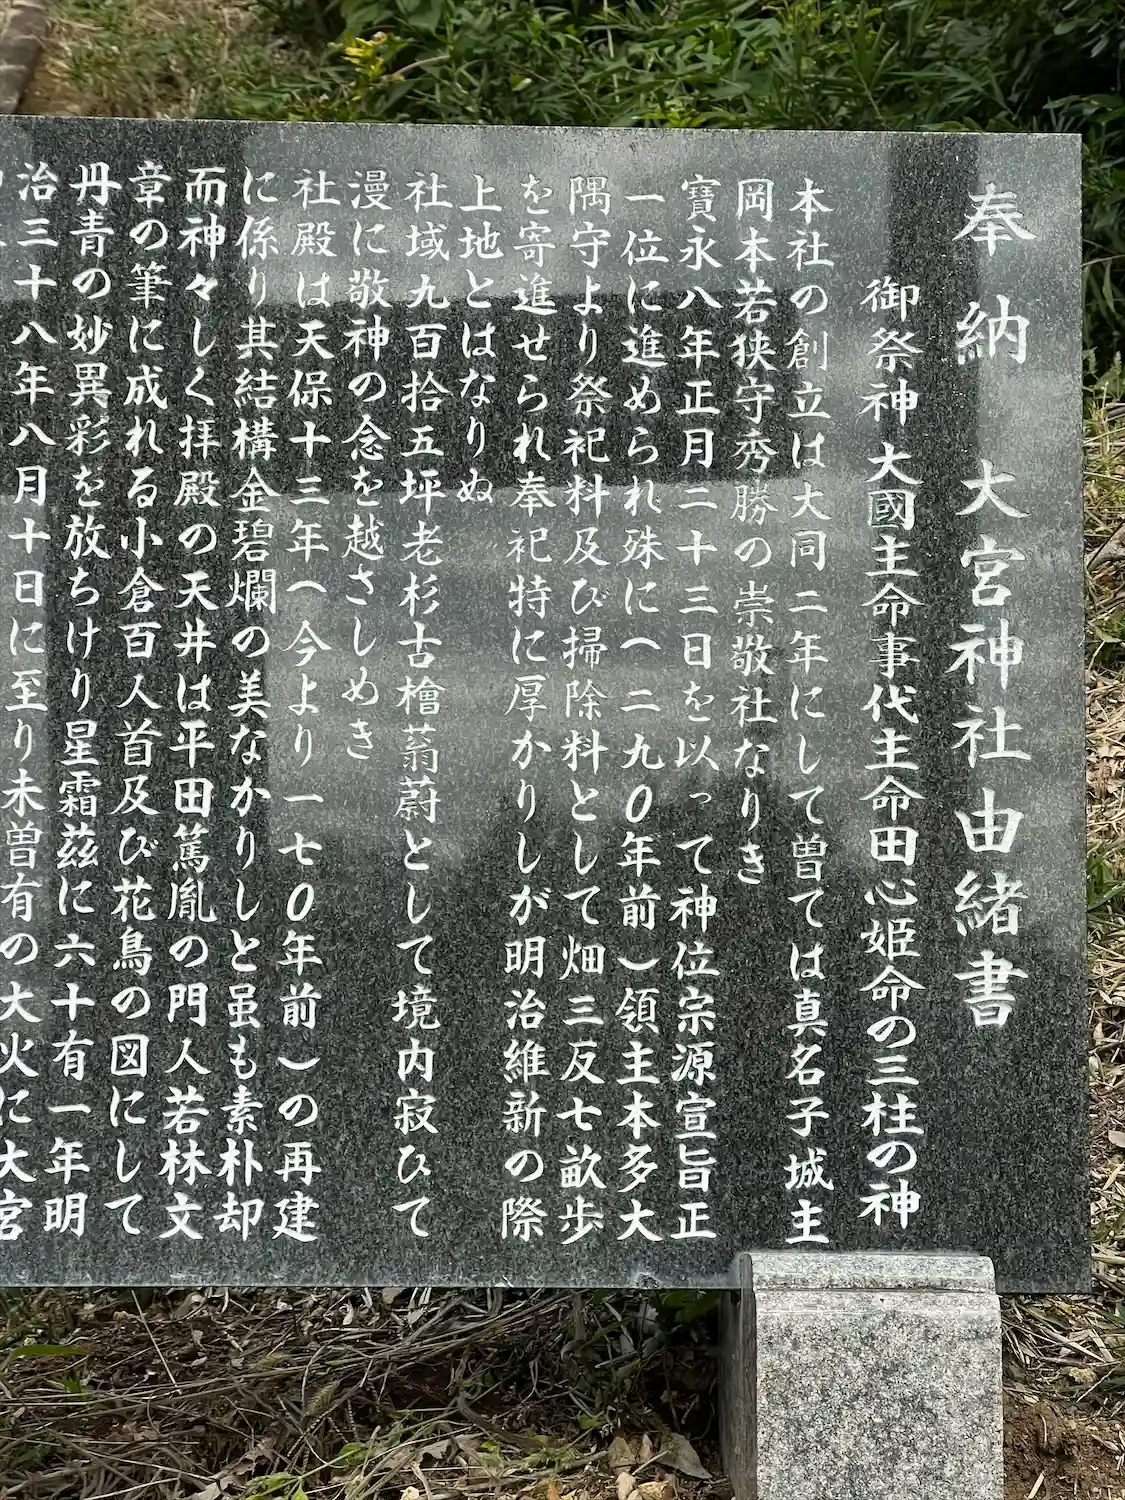 奉納 大宮神社由緒書
御祭神 大國主命事代主命田心姫命の三柱の神
本社の創立は大同二年にして曽ては真名子城主
岡本若狭守秀勝の崇敬社なりき
寳永八年正月二十三日を以って神位宗源宣旨正
一位に進められ殊に(二九0年前)領主本多大
隅守より祭祀料及び掃除料として畑三反七畝歩
を寄進せられ奉祀特に厚かりしが明治維新の際
上地とはなりぬ
社域九百拾五坪老杉古檜蓊蔚として境内寂ひて
漫に敬神の念を越さしめき
社殿は天保十三年(今より一七0年前)の再建
に係り其結構金碧爛の美なかりしと虽も素朴却
而神々しく拝殿の天井は平田篤胤の門人若林文
章の筆に成れる小倉百人首及び花鳥の図にして
丹青の妙異彩を放ちけり星霜茲に六十有一年明
治三十八年八月十日に至り未曽有の大火に大宮